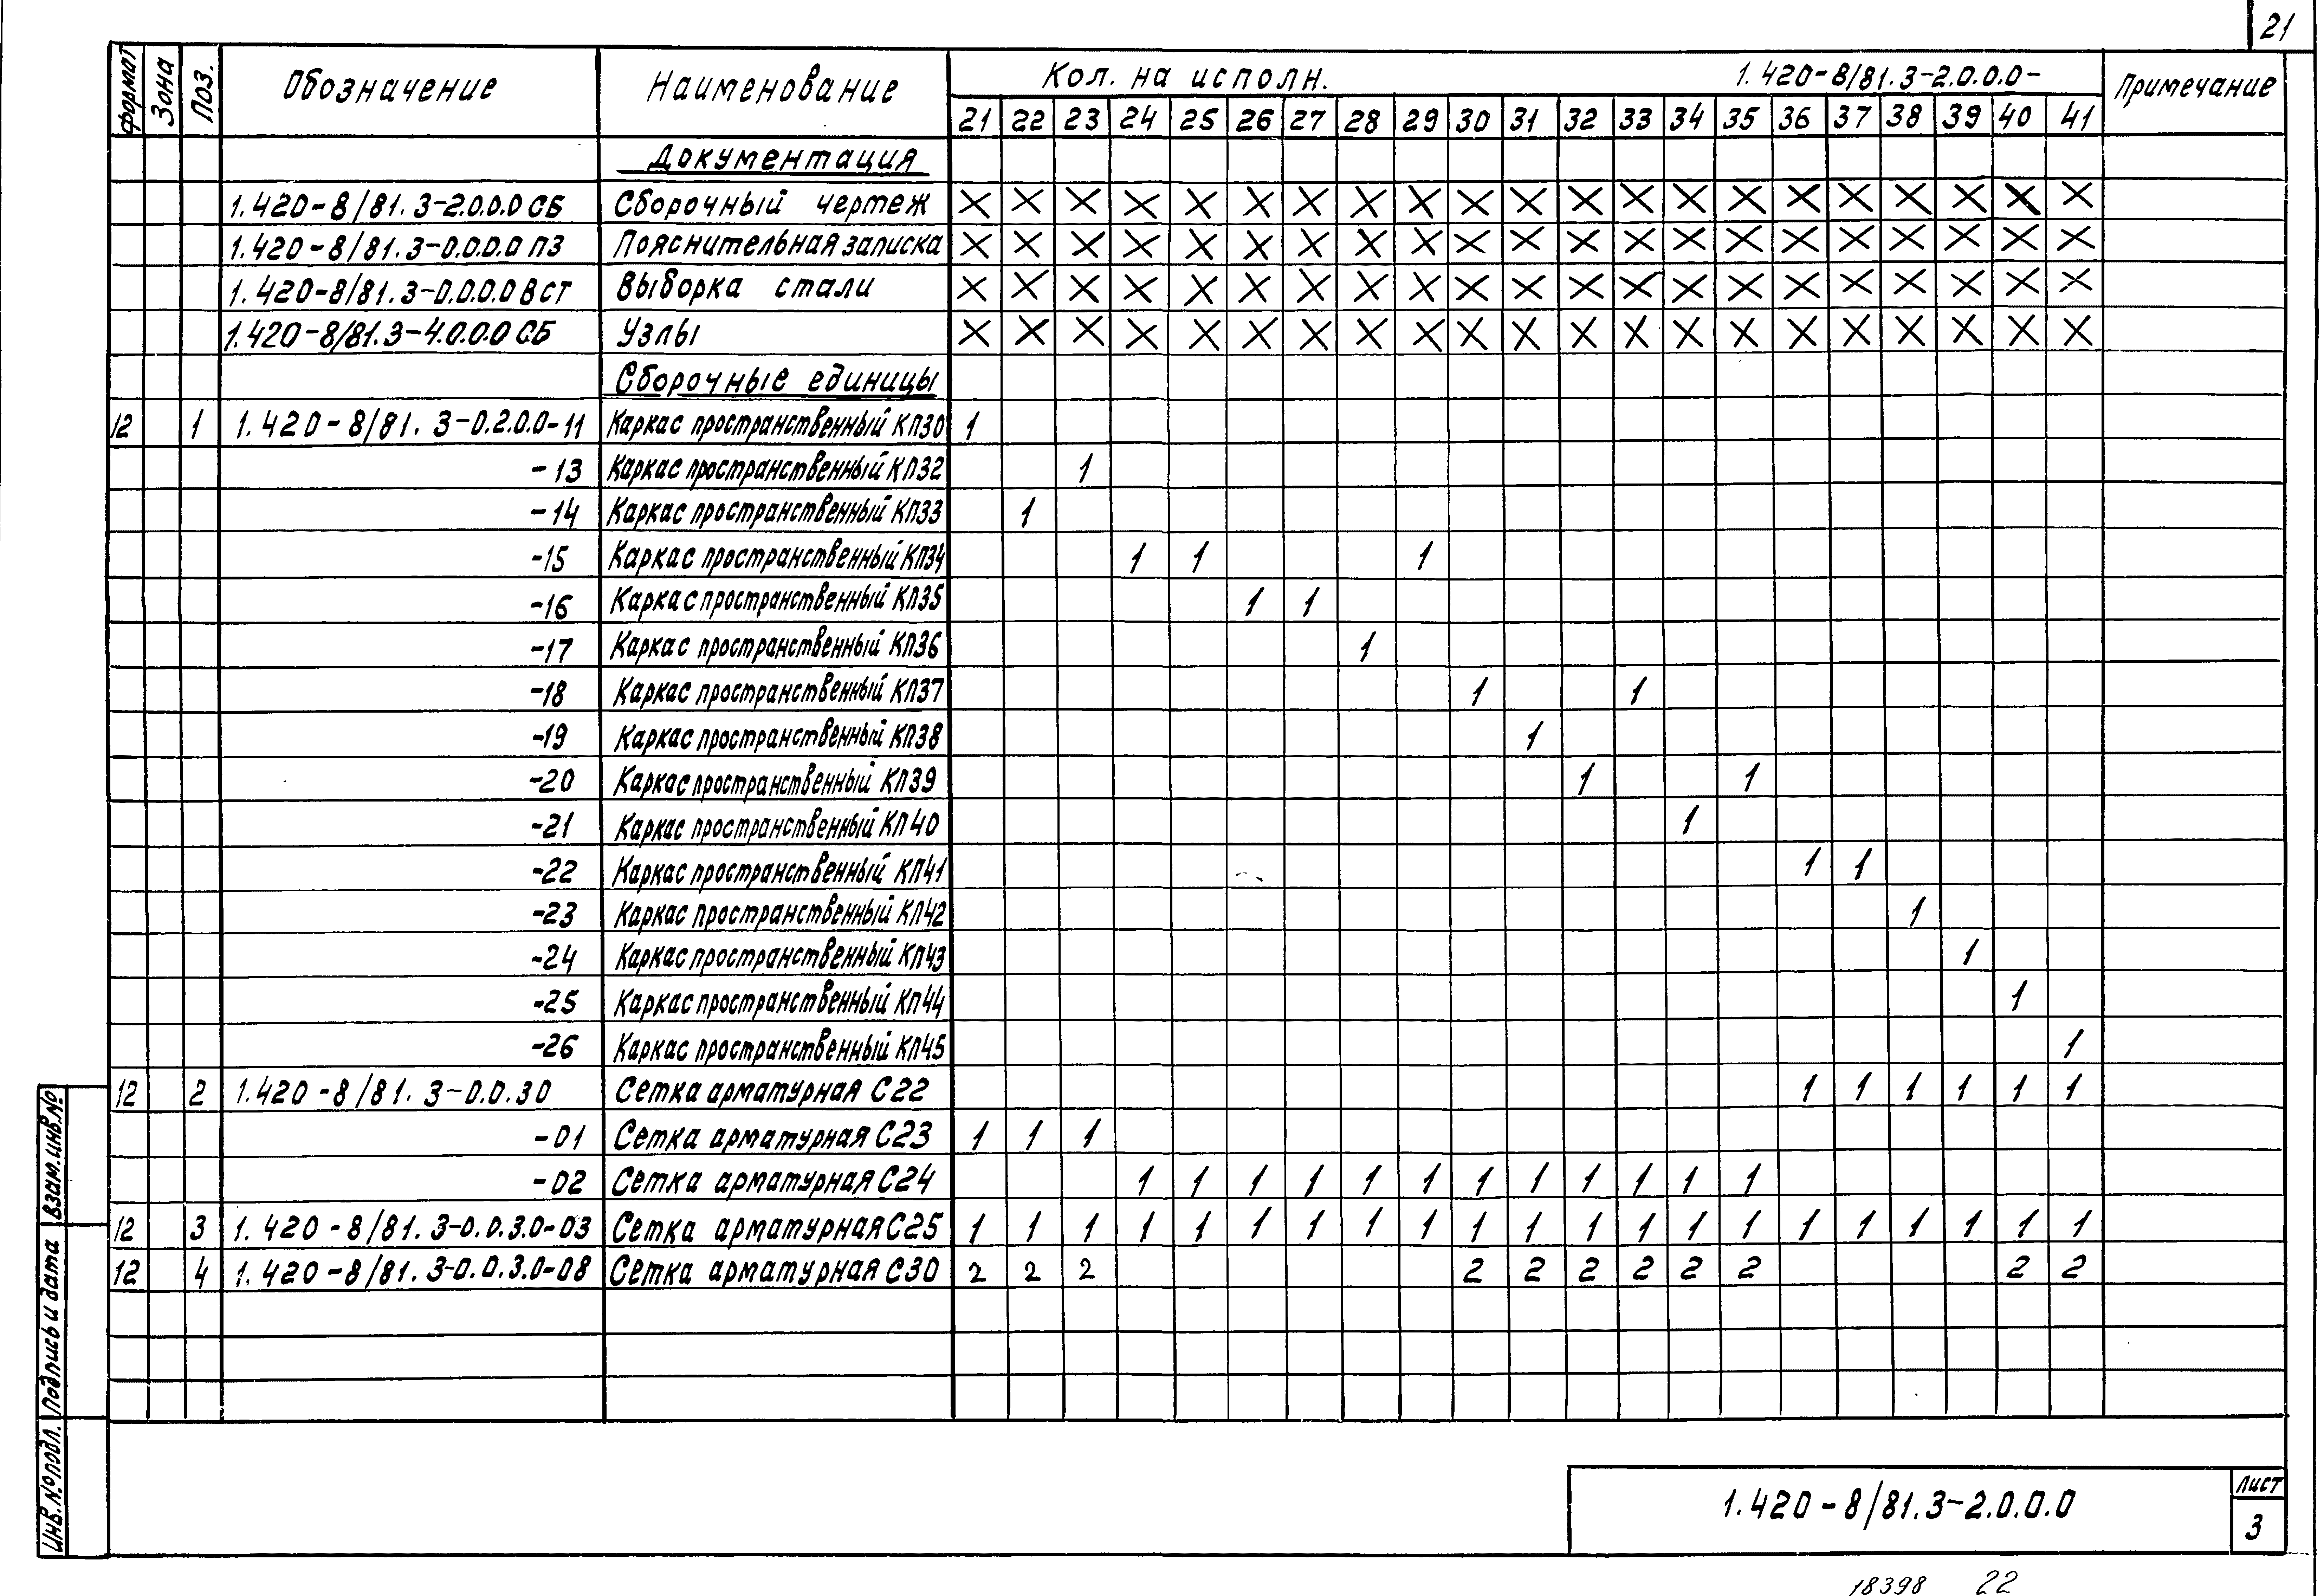 21
формат Зона Поз. Обозначение Наименование Кол. на исполн. 1.420-8/81.3-2.0.0.0- Примечание
21 22 23 24 25 26 27 28 29 30 31 32 33 34 35 36 37 38 39 40 41
Документация
1.420-8/81.3-2.0.0.0 СБ Сборочный чертеж X X X X X X X X X X X X X X X X X X X X X
1.420-8/81.3-0.0.0.0 ПЗ Пояснительная записка X X X X X X X X X X X X X X X X X X X X X
1.420-8/81.3-0.0.0.0 ВСТ Выборка стали X X X X X X X X X X X X X X X X X X X X X
1.420-8/81.3-4.0.0.0 СБ Узлы X X X X X X X X X X X X X X X X X X X X X
Сборочные единицы
12 1 1.420-8/81.3-0.2.0.0-11 Каркас пространственный КП30 1
-13 Каркас пространственный КП32 1
-14 Каркас пространственный КП33 1
-15 Каркас пространственный КП34 1 1 1
-16 Каркас пространственный КП35 1 1
-17 Каркас пространственный КП36 1
-18 Каркас пространственный КП37 1 1
-19 Каркас пространственный КП38 1
-20 Каркас пространственный КП39 1 1
-21 Каркас пространственный КП40 1
-22 Каркас пространственный КП41 1 1
-23 Каркас пространственный КП42 1
-24 Каркас пространственный КП43 1
-25 Каркас пространственный КП44 1
-26 Каркас пространственный КП45 1
12 2 1.420-8/81.3-0.0.30 Сетка арматурная С22 1 1 1 1 1 1
-01 Сетка арматурная С23 1 1 1
-02 Сетка арматурная С24 1 1 1 1 1 1 1 1 1 1 1 1
12 3 1.420-8/81.3-0.0.3.0-03 Сетка арматурная С25 1 1 1 1 1 1 1 1 1 1 1 1 1 1 1 1 1 1 1 1 1
12 4 1.420-8/81.3-0.0.3.0-08 Сетка арматурная С30 2 2 2 2 2 2 2 2 2 2 2
Взам.инв.№
Подпись и дата
Инв.№подл.
1.420-8/81.3-2.0.0.0
Лист
3
18398 22